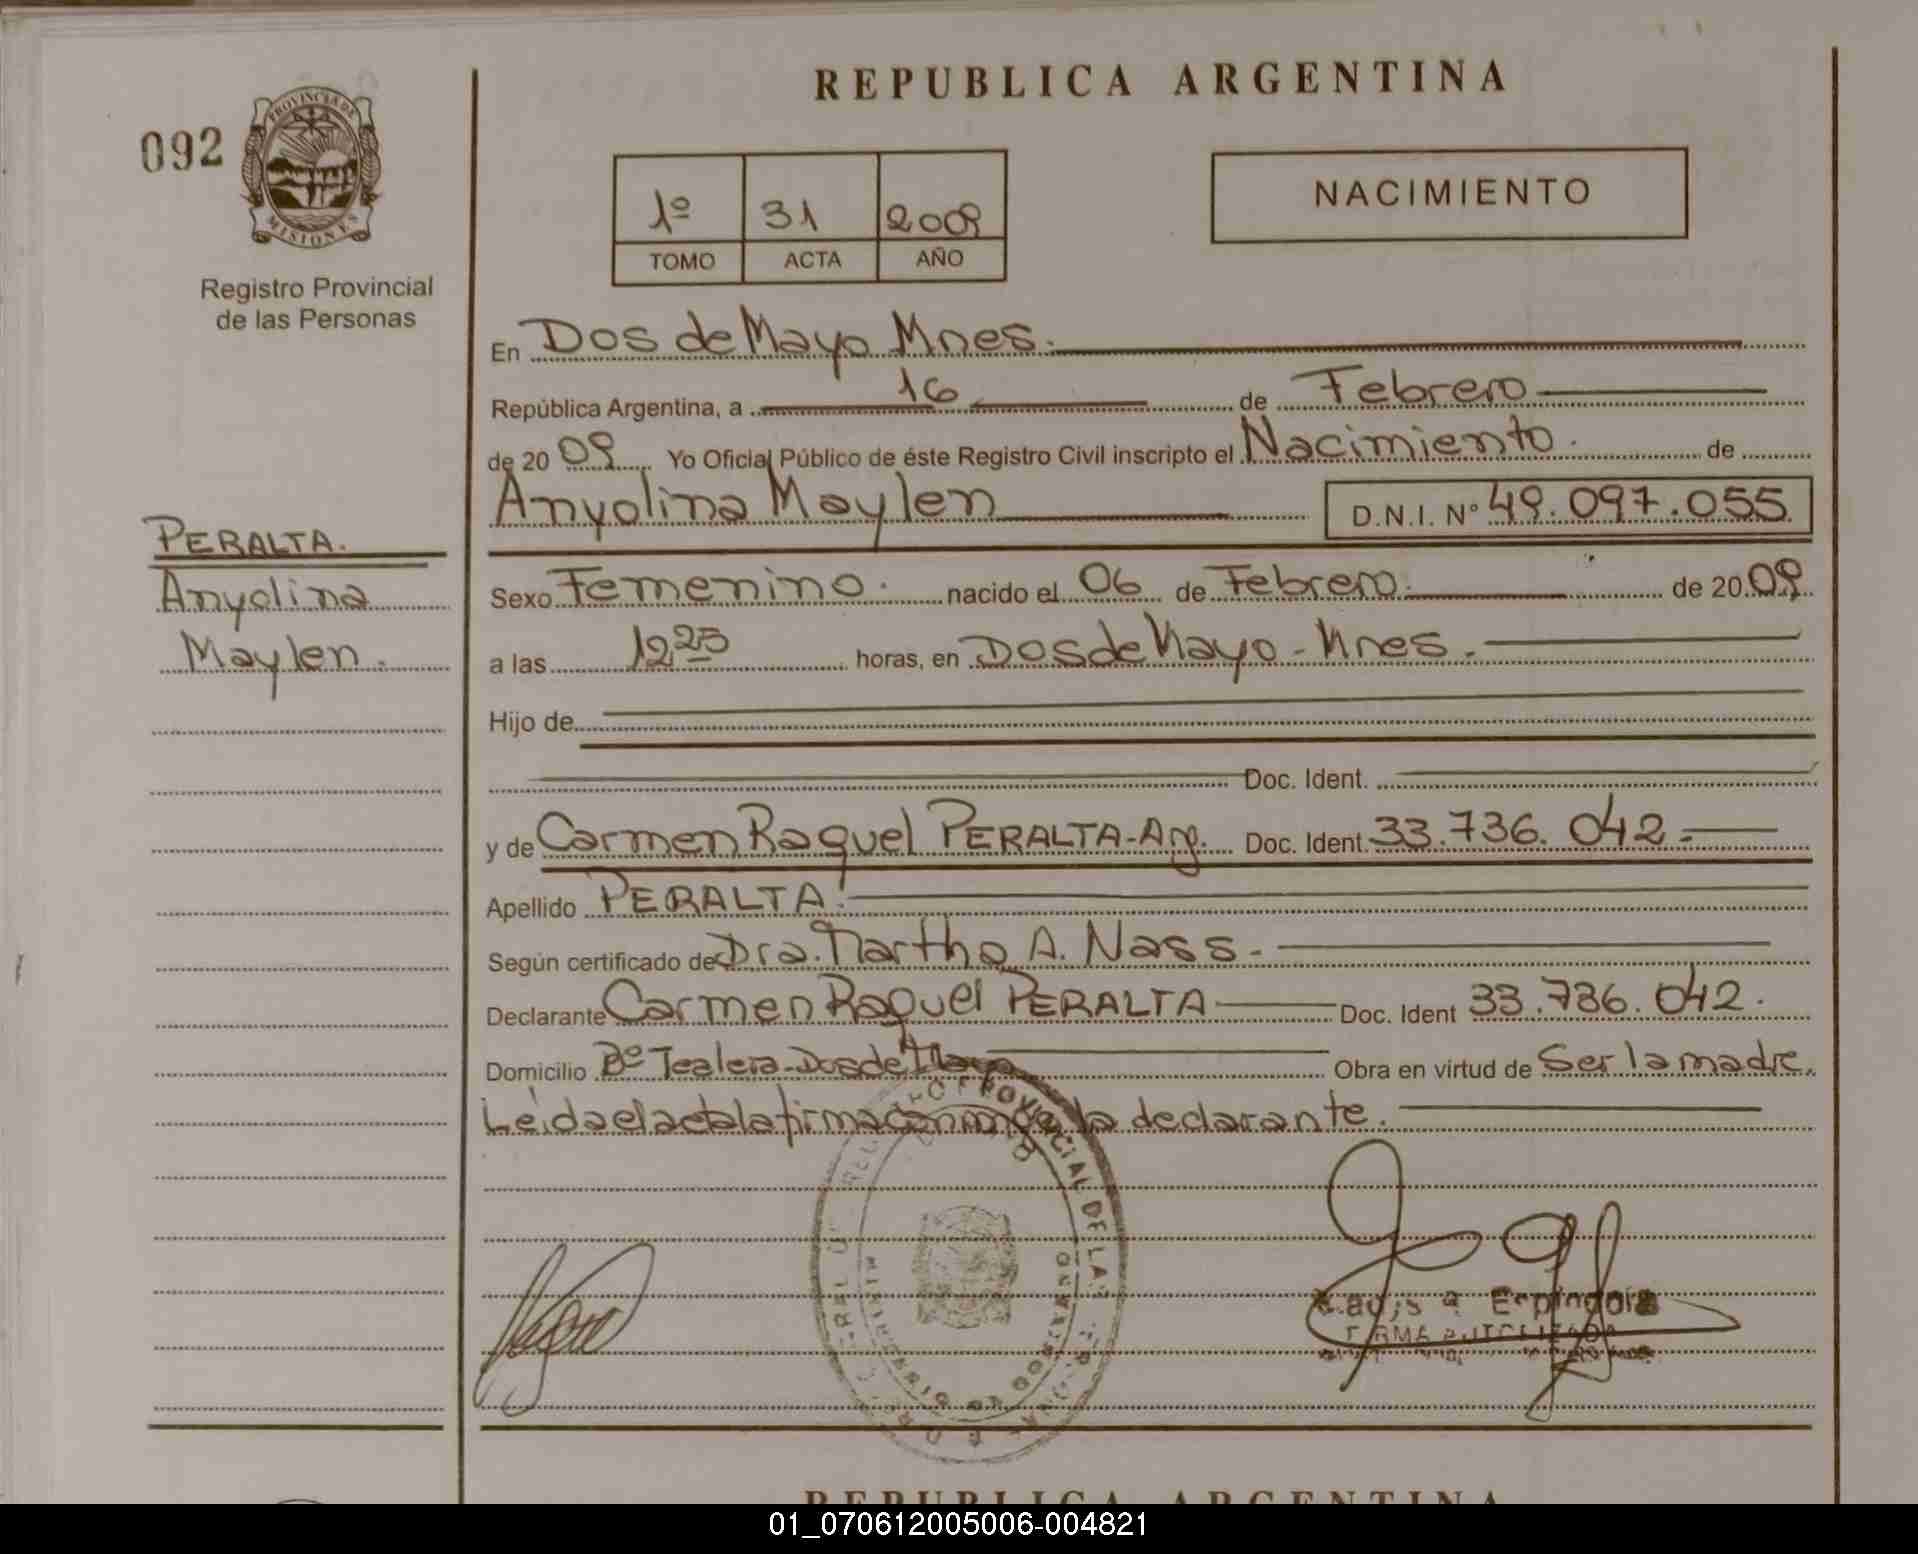 REPUBLICA ARGENTINA
092
PROVINCIA DE
MISIONES
Registro Provincial
de las Personas
1º 31 2009
TOMO ACTA AÑO
NACIMIENTO
En Dos de Mayo Mnes.
República Argentina, a 16 de Febrero
de 20 09 Yo Oficial Público de éste Registro Civil inscripto el Nacimiento. de
Anyolina Maylen D.N.I. Nº 49.097.055
PERALTA.
Anyolina
Maylen.
Sexo Femenino. nacido el 06 de Febrero. de 20 09.
a las 12 25 horas, en Dos de Mayo - Mnes.
Hijo de
Doc. Ident.
y de Carmen Raquel PERALTA-Arg. Doc. Ident. 33.736.042.-
Apellido PERALTA.
Según certificado de Dra. Martha A. Nass.
Declarante Carmen Raquel PERALTA Doc. Ident 33.736.042.
Domicilio Bº Tealera-Dos de Mayo Obra en virtud de Ser la madre.
Leída el acta la firma conmigo la declarante.
PROVINCIAL DE LAS
DOS DE MAYO
MISIONES
Espindola
FIRMA AUTORIZADA
REPUBLICA ARGENTINA
01_070612005006-004821